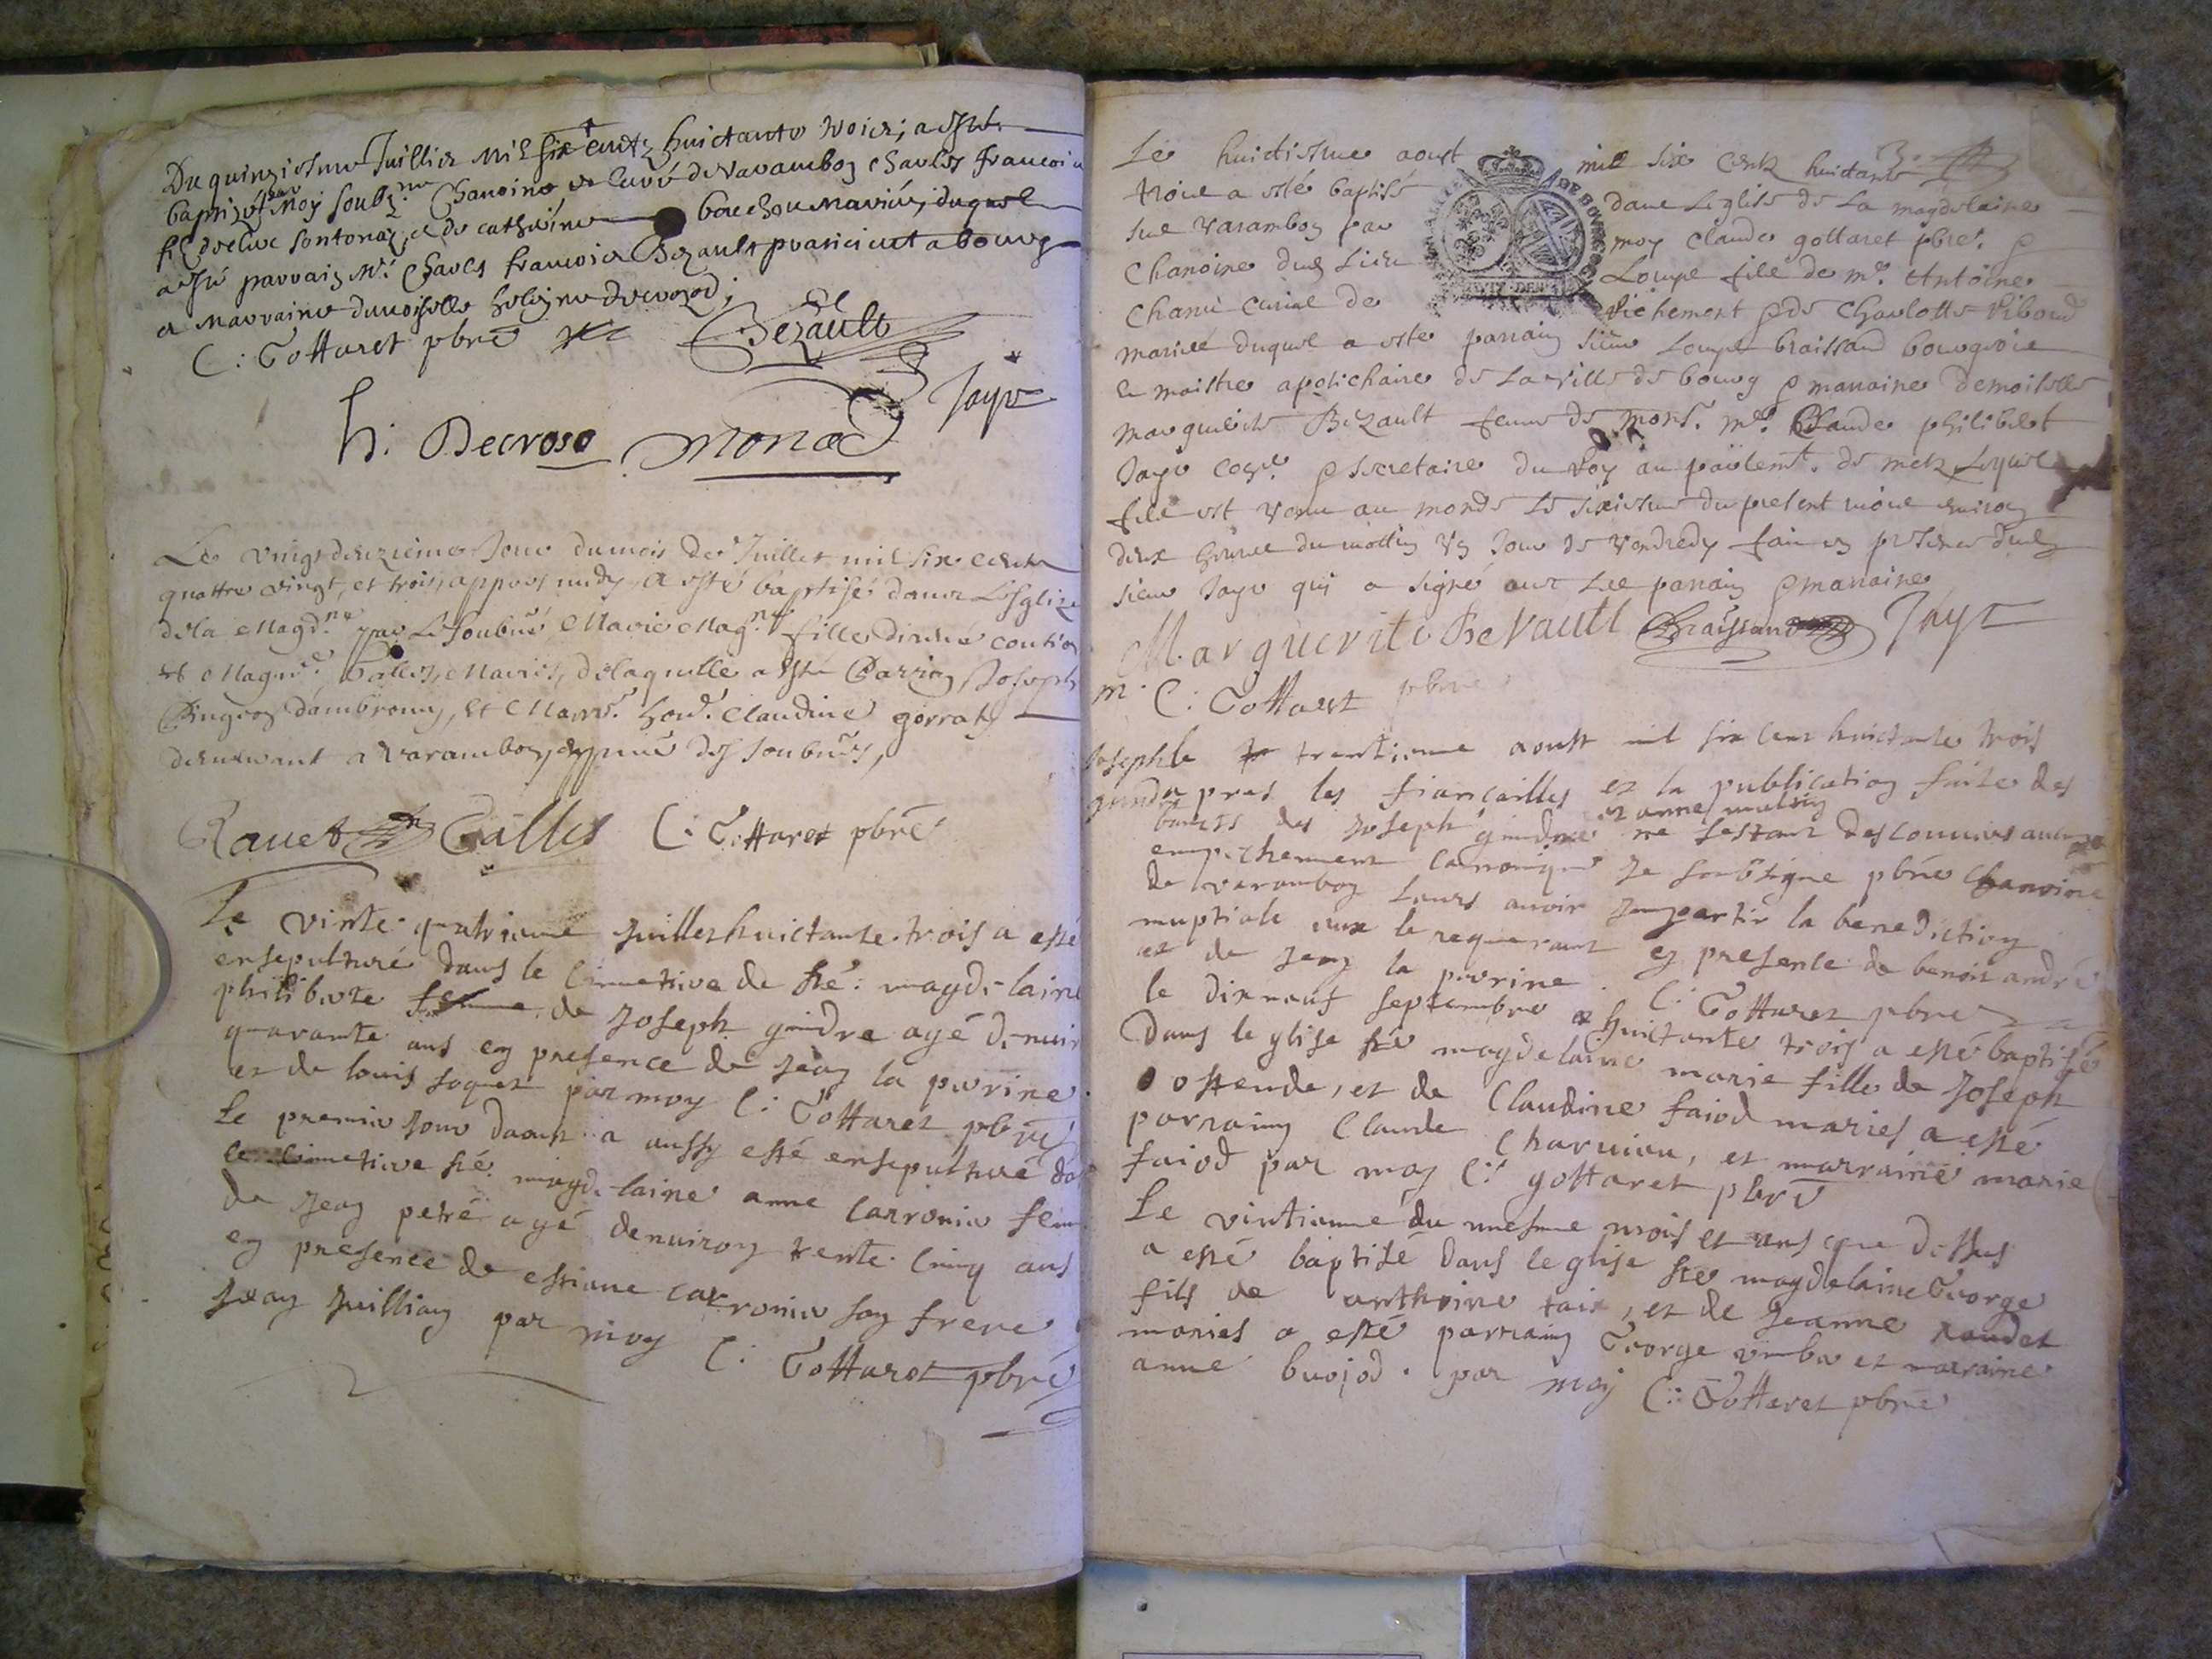 Du quinziesme Juillier Mil six centz huictante trois; a esté
baptizé par Moy soubz.né Chanoine et curé de Varambon Charles François
filz de Claude fontenay, et de Catherine bouchou mariés, duquel
a esté parrain Mr. Charles François Bezault praticient a bourg
et marraine damoiselle
C: Gottaret pbre Bezault
Jayr
h: Decroso monard
Le vingt deuzieme Jour du mois de Juillet mil six cents
quattre vingt, et trois, appres midy a esté baptisé dans L'Esglize
de la Magd.ne par Le Soubné Marie Mag.ne fille
et Tallis, Mariés, de laquelle a esté Parrin Joseph
Pingeon dambronay, Et Marr.e hon.e Claudine gorrat
demeurant a Varambon, des soubnés,
Ravet Tallis C: Gottaret pbre
Le vinte quatrieme Juillet huictante trois a esté
ensepulturé dans le Cimetiere de Ste: magdelaine
philiberte femme de Joseph guidre agé denuir
quarante ans en presence de Jean la perrine
et de louis soquet par moy C: Gottaret pbre
Le premier Jour daoust a aussy esté ensepulturé da
le Cimetiere Ste. magdelaine anne Carronier fem
de Jean petré agé denuiron trente cinq ans
en presence de estiene carronier son frere
Jean Juillian par moy C: Gottaret pbre
Le huictiesme aoust mill six Centz huictante
trois a esté baptisé dans Leglise de La magdelaine
sur Varambon par moy Claude gottaret pbre. &
Chanoine dud Lieu Loup fils de me. Antoine
Chanu curial de Richemont & de Charlotte Riboud
mariés duquel a esté parrain sieur Loup braissand bourgeois
& maistre apotichaire de La ville de bourg & maraine demoiselle
Marguerite Bezault femme de Mons.r me. Claude philibert
Jayr Cons.er & Secretaire du Roy au parlem.t de metz Lequel
fils est venu au monde Le sixiesme du present mois environ
deux heures du mattin un Jour de Vendredy fait en presence dud
sieur Jayr qui a signé avec Les parrain & maraine
Marguerite Bezault Braissand Jayr
m. C: Gottaret pbre
Joseph
guidre
le trentieme aoust mil six cens huictante trois
apres les fiancailles et la publication faite des
bancts des Joseph guidre et anne ne sestant descouvert aucun
empechement canonique Je soubsigne pbre Chanoine
de varambon leurs avoir Jmpartir la benediction
nuptiale eux le requerant en presence de benoit andré
et de Jean la perrine. C: Gottaret pbre
le dixneuf septembre huictante trois a esté baptisée
Dans leglise Ste magdelaine marie fille de Joseph
ostende, et de Claudine faiod mariés a esté
parraing Claude Charvieu, et marraine marie
faiod par moy C: gottaret pbre
Le vintieme du mesme mois et ans que dessus
a esté baptisé dans leglise Ste magdelaine George
fils de anthoine taix, et de Jeanne raudet
mariés a esté parraing George et marraine
anne buojod. par moy C: Gottaret pbre